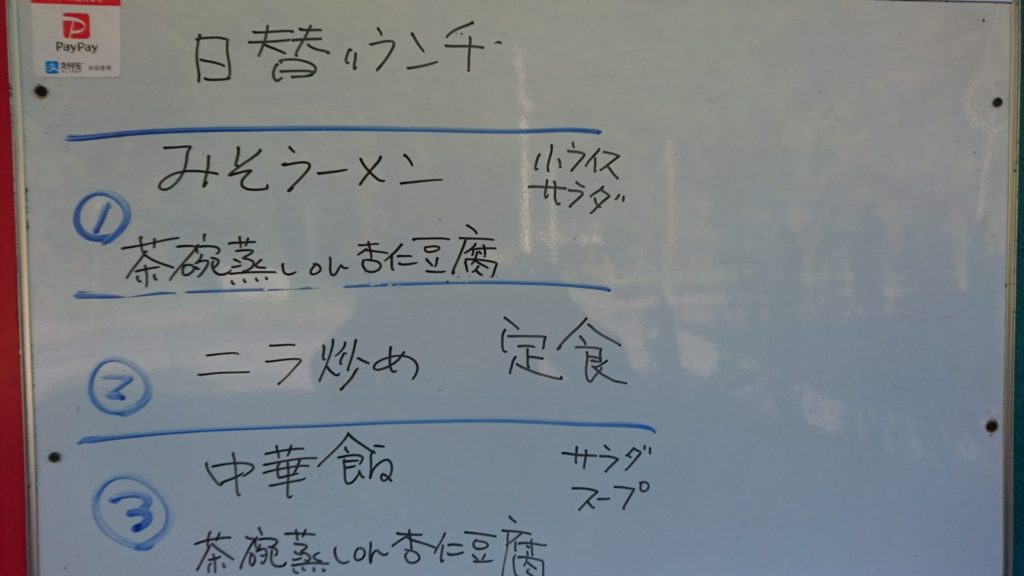 PayPay
支付宝
日替りランチ
みそラーメン
小ライス
サラダ
①
茶碗蒸しor杏仁豆腐
ニラ炒め 定食
②
中華飯
サラダ
スープ
③
茶碗蒸しor杏仁豆腐